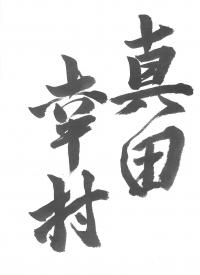 真田
幸村